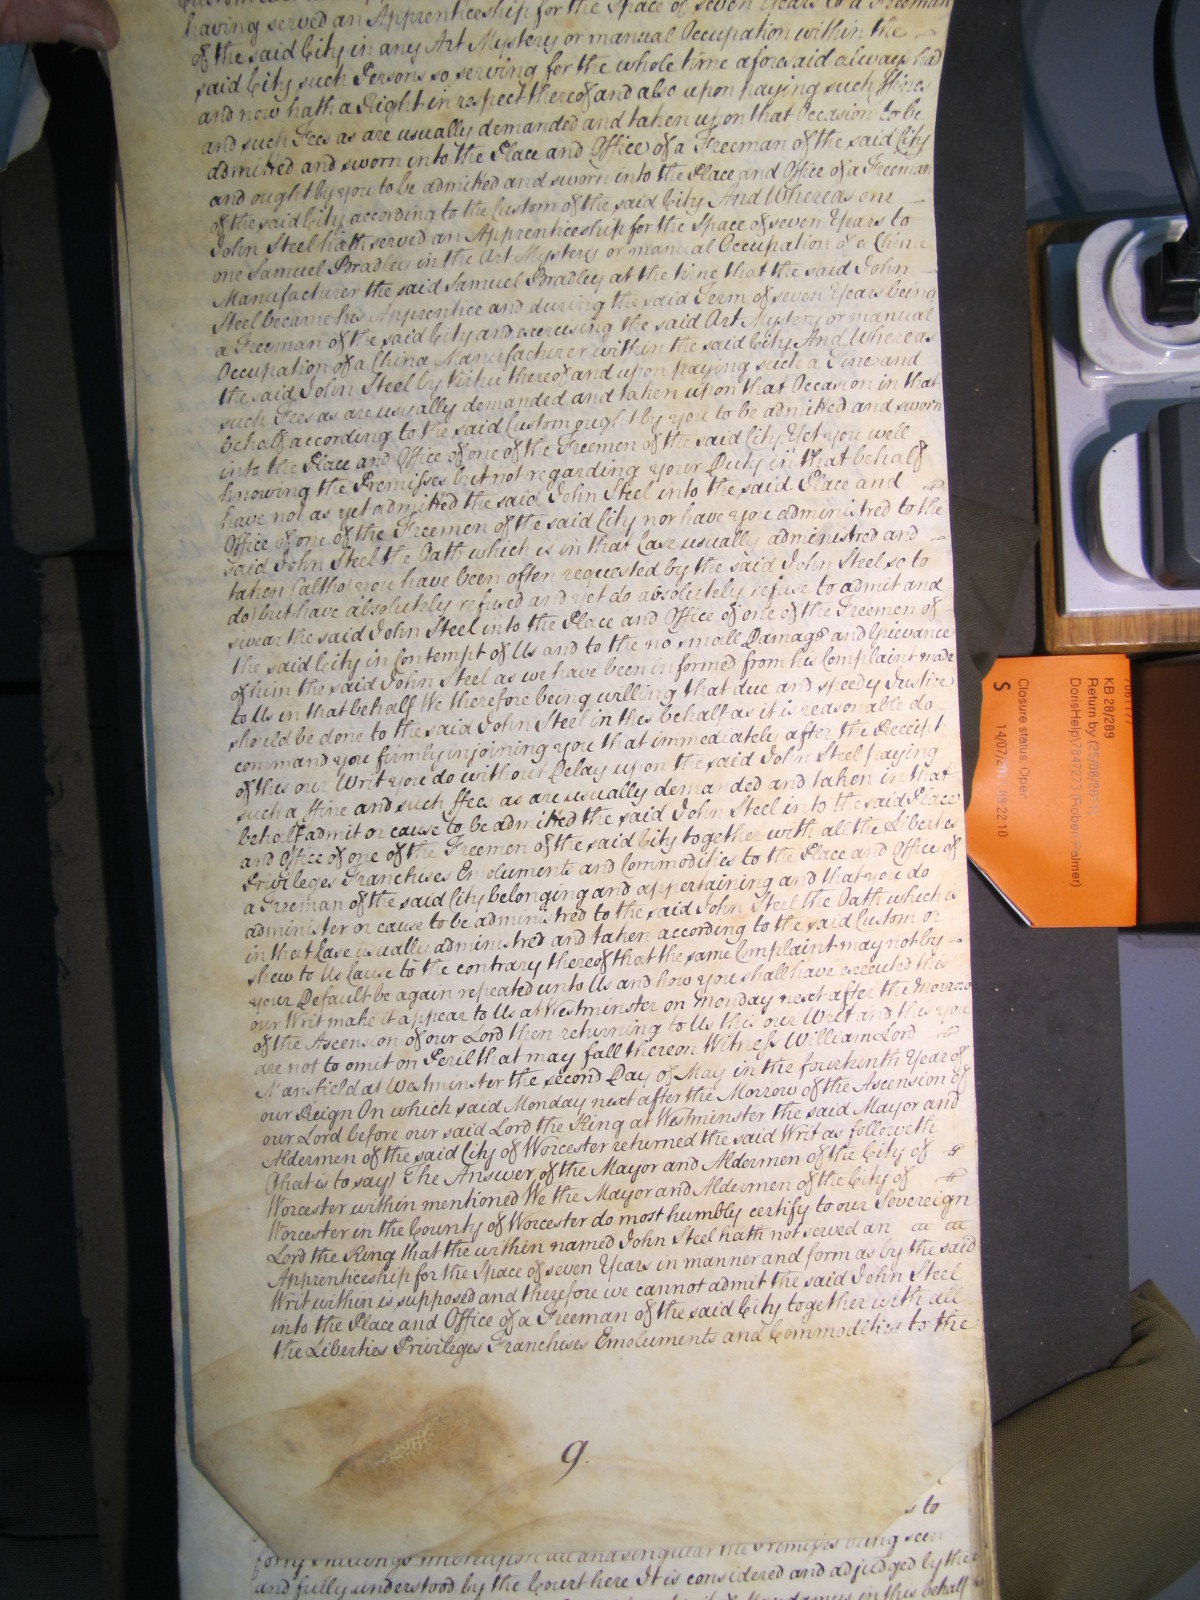 having served an Apprenticeship for the Space of seven Years to a Freeman
of the said City in any Art Mystery or manual Occupation within the
said City such Persons so serving for the whole time aforesaid always had
and now hath a Right in respect thereof and also upon paying such ffines
and such Fees as are usually demanded and taken upon that Occasion to be
admitted and sworn into the Place and Office of a Freeman of the said City
and ought by you to be admitted and sworn into the Place and Office of a Freeman
of the said City according to the Custom of the said City And Whereas one
John Steel hath served an Apprenticeship for the Space of seven Years to
one Samuel Bradley in the Art Mystery or manual Occupation of a China
Manufacturer the said Samuel Bradley at the time that the said John
Steel became his Apprentice and during the said Term of seven Years being
a Freeman of the said City and exercising the said Art Mystery or manual
Occupation of a China Manufacturer within the said City And Whereas
the said John Steel by Virtue thereof and upon paying such a Fine and
such Fees as are usually demanded and taken upon that Occasion in that
behalf according to the said Custom ought by you to be admitted and sworn
into the Place and Office of one of the Freemen of the said City Yet you well
knowing the Premisses but not regarding your Duty in that behalf
have not as yet admitted the said John Steel into the said Place and
Office of one of the Freemen of the said City nor have you administred to the
said John Steel the Oath which is in that Case usually administred and
taken (altho' you have been often requested by the said John Steel so to
do) but have absolutely refused and yet do absolutely refuse to admit and
swear the said John Steel into the Place and Office of one of the Freemen of
the said City in Contempt of Us and to the no small Damage and Grievance
of him the said John Steel as we have been informed from his Complaint made
to Us in that behalf We therefore being willing that due and speedy Justice
should be done to the said John Steel in this behalf as it is reasonable do
command you firmly injoining you that immediately after the Receipt
of this our Writ you do without Delay upon the said John Steel paying
such a ffine and such ffees as are usually demanded and taken in that
behalf admit or cause to be admitted the said John Steel into the said Place
and Office of one of the Freemen of the said City together with all the Liberties
Privileges Franchises Emoluments and Commodities to the Place and Office of
a Freeman of the said City belonging and appertaining and that you do
administer or cause to be administred to the said John Steel the Oath which is
in that Case usually administred and taken according to the said Custom or
shew to Us Cause to the contrary thereof that the same Complaint may not by
your Default be again repeated unto Us and how you shall have executed this
our Writ make it appear to Us at Westminster on Monday next after the Morrow
of the Ascension of our Lord then returning to Us this our Writ and this you
are not to omit on Peril that may fall thereon Witness William Lord
Mansfield at Westminster the second Day of May in the fourteenth Year of
our Reign On which said Monday next after the Morrow of the Ascension of
our Lord before our said Lord the King at Westminster the said Mayor and
Aldermen of the said City of Worcester returned the said Writ as followeth
(that is to say) The Answer of the Mayor and Aldermen of the City of
Worcester within mentioned We the Mayor and Aldermen of the City of
Worcester in the County of Worcester do most humbly certify to our Sovereign
Lord the King that the within named John Steel hath not served an
Apprenticeship for the Space of seven Years in manner and form as by the said
Writ within is supposed and therefore we cannot admit the said John Steel
into the Place and Office of a Freeman of the said City together with all
the Liberties Privileges Franchises Emoluments and Commodities to the
9
s to
forty shillings thereupon all and singular the Premises being seen
and fully understood by the Court here It is considered and adjudged by the
in this behalf
KB 28/289
Return by (22/08/2010)
DorisHelp\784727 (Robert Palmer)
Closure status: Open
S